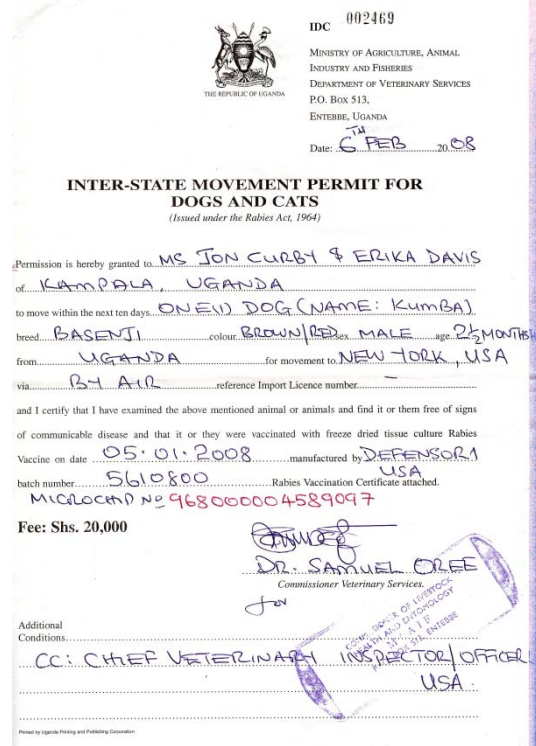 IDC 002469
THE REPUBLIC OF UGANDA
MINISTRY OF AGRICULTURE, ANIMAL
INDUSTRY AND FISHERIES
DEPARTMENT OF VETERINARY SERVICES
P.O. BOX 513,
ENTEBBE, UGANDA
Date: 6TH FEB 2008
INTER-STATE MOVEMENT PERMIT FOR
DOGS AND CATS
(Issued under the Rabies Act, 1964)
Permission is hereby granted to MS JON CURBY & ERIKA DAVIS
of KAMPALA, UGANDA
to move within the next ten days ONE(1) DOG (NAME: KUMBA)
breed BASENJI colour BROWN/RED sex MALE age 2½ MONTHS
from UGANDA for movement to NEW YORK, USA
via BY AIR reference Import Licence number –
and I certify that I have examined the above mentioned animal or animals and find it or them free of signs
of communicable disease and that it or they were vaccinated with freeze dried tissue culture Rabies
Vaccine on date 05.01.2008 manufactured by DEFENSOR1
USA
batch number 5610800 Rabies Vaccination Certificate attached.
MICROCHIP No 968000004589097
Fee: Shs. 20,000
DR. SAMUEL OREE
Commissioner Veterinary Services.
for
COMM. OF LIVESTOCK
HEALTH AND ENTOMOLOGY
ENTEBBE
Additional
Conditions
CC: CHIEF VETERINARY INSPECTOR/OFFICER
USA
Printed by Uganda Printing and Publishing Corporation